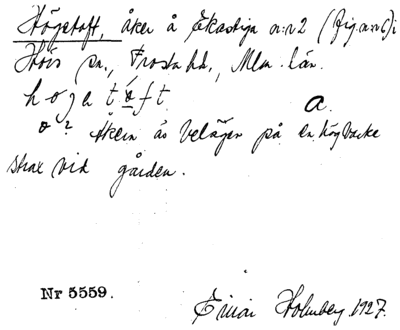 Högetoft, åker å Ekastiga n:r 2 (fig. n:r 6) i
Hörs sn., Frosta hd., Mlm. län.
h o g e t o f t a.
o? Åkern är belägen på en hög backe
strax vid gården.
Nr 5559.
Einar Holmberg 1927.